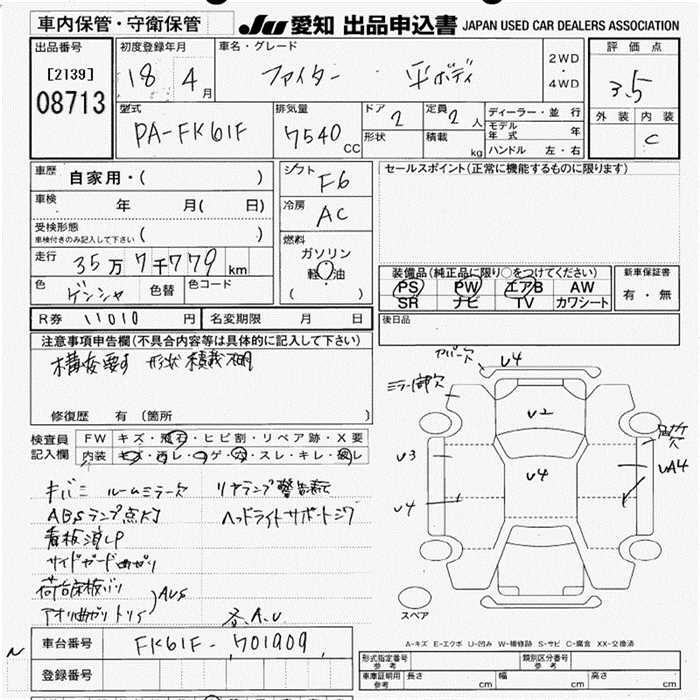 車内保管・守衛保管 JU 愛知 出品申込書 JAPAN USED CAR DEALERS ASSOCIATION
出品番号 初度登録年月 車名・グレード 2WD・4WD 評価点
[2139] 18 4月 ファイター 平ボディ 3.5
08713 外装 内装
型式 排気量 ドア 2 定員 2人 ディーラー・並行 C
PA-FK61F 7540CC 形状 積載 kg モデル年式 年
ハンドル 左・右
車歴 自家用・( ) シフト F6 セールスポイント(正常に機能するものに限ります)
車検 年 月( 日) 冷房 AC
受検形態 ( )
車検付きのみ記入して下さい
燃料 ガソリン 軽油 ( )
走行 35万7千779km
装備品(純正品に限り○をつけてください) 新車保証書
色 ゲンシャ 色替 色コード PS PW エアB AW 有・無
SR ナビ TV カワシート
R券 11010円 名変期限 月 日 後日品
注意事項申告欄(不具合内容等は具体的に記入して下さい)
構変要す 形状 積載
修復歴 有 (箇所
検査員記入欄 FW キズ・飛石・ヒビ割・リペア跡・X要
内装 キズ・汚レ・コゲ・穴・スレ・キレ・破レ
キバミ ルームミラー欠
ABSランプ点灯 ヘッドライトサポート
看板消し
サイドガード曲がり
荷台床板バリ
アオリ曲がり
各A.U
カバー欠 U4
ミラー
U2
U3 U4 UA4
U4
スペア
A-キズ E-エクボ U-凹み W-補修跡 S-サビ C-腐食 XX-交換済
車台番号 FK61F-701909
登録番号
形式指定番号 参考 類別区分番号 参考
車庫証明用 参考 長さ cm 幅 cm 高さ cm